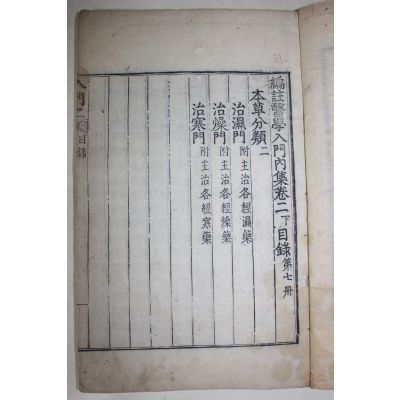 編註醫學入門內集卷二下目錄 第七册
本草分類二
治濕門 附主治各經濕藥
治燥門 附主治各經燥藥
治寒門 附主治各經寒藥
入門二 目錄